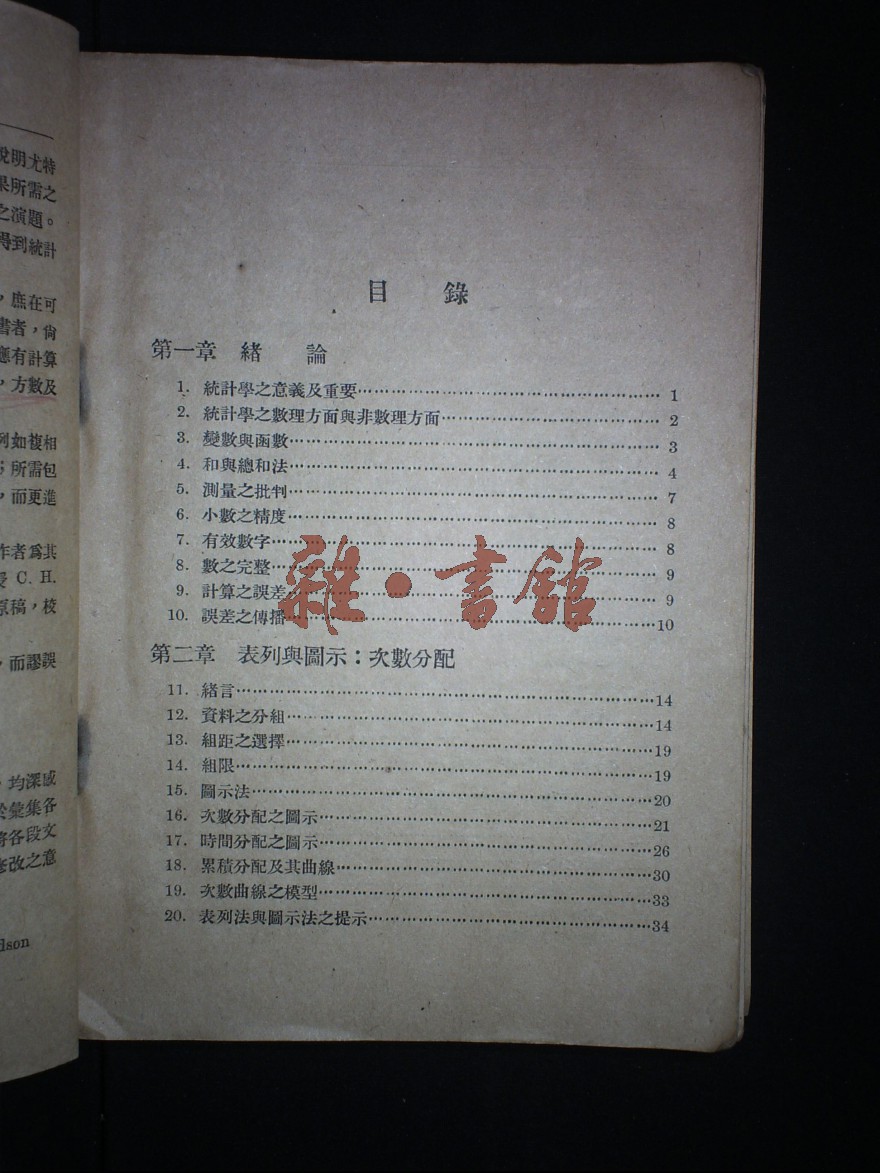 說明尤特
果所需之
之演題。
得到統計
，庶在可
書者，倘
應有計算
，方數及
列如複相
；所需包
，而更進
作者爲其
C. H.
原稿，校
，而謬誤
，均深感
彙集各
將各段文
修改之意
dson
目 錄
第一章 緒 論
1. 統計學之意義及重要………………………………………… 1
2. 統計學之數理方面與非數理方面……………………………… 2
3. 變數與函數………………………………………………… 3
4. 和與總和法………………………………………………… 4
5. 測量之批判………………………………………………… 7
6. 小數之精度………………………………………………… 8
7. 有效數字…………………………………………………… 8
8. 數之完整…………………………………………………… 9
9. 計算之誤差………………………………………………… 9
10. 誤差之傳播…………………………………………………10
第二章 表列與圖示：次數分配
11. 緒言…………………………………………………………14
12. 資料之分組…………………………………………………14
13. 組距之選擇…………………………………………………19
14. 組限…………………………………………………………19
15. 圖示法………………………………………………………20
16. 次數分配之圖示……………………………………………21
17. 時間分配之圖示……………………………………………26
18. 累積分配及其曲線…………………………………………30
19. 次數曲線之模型……………………………………………33
20. 表列法與圖示法之提示……………………………………34
雜·書館